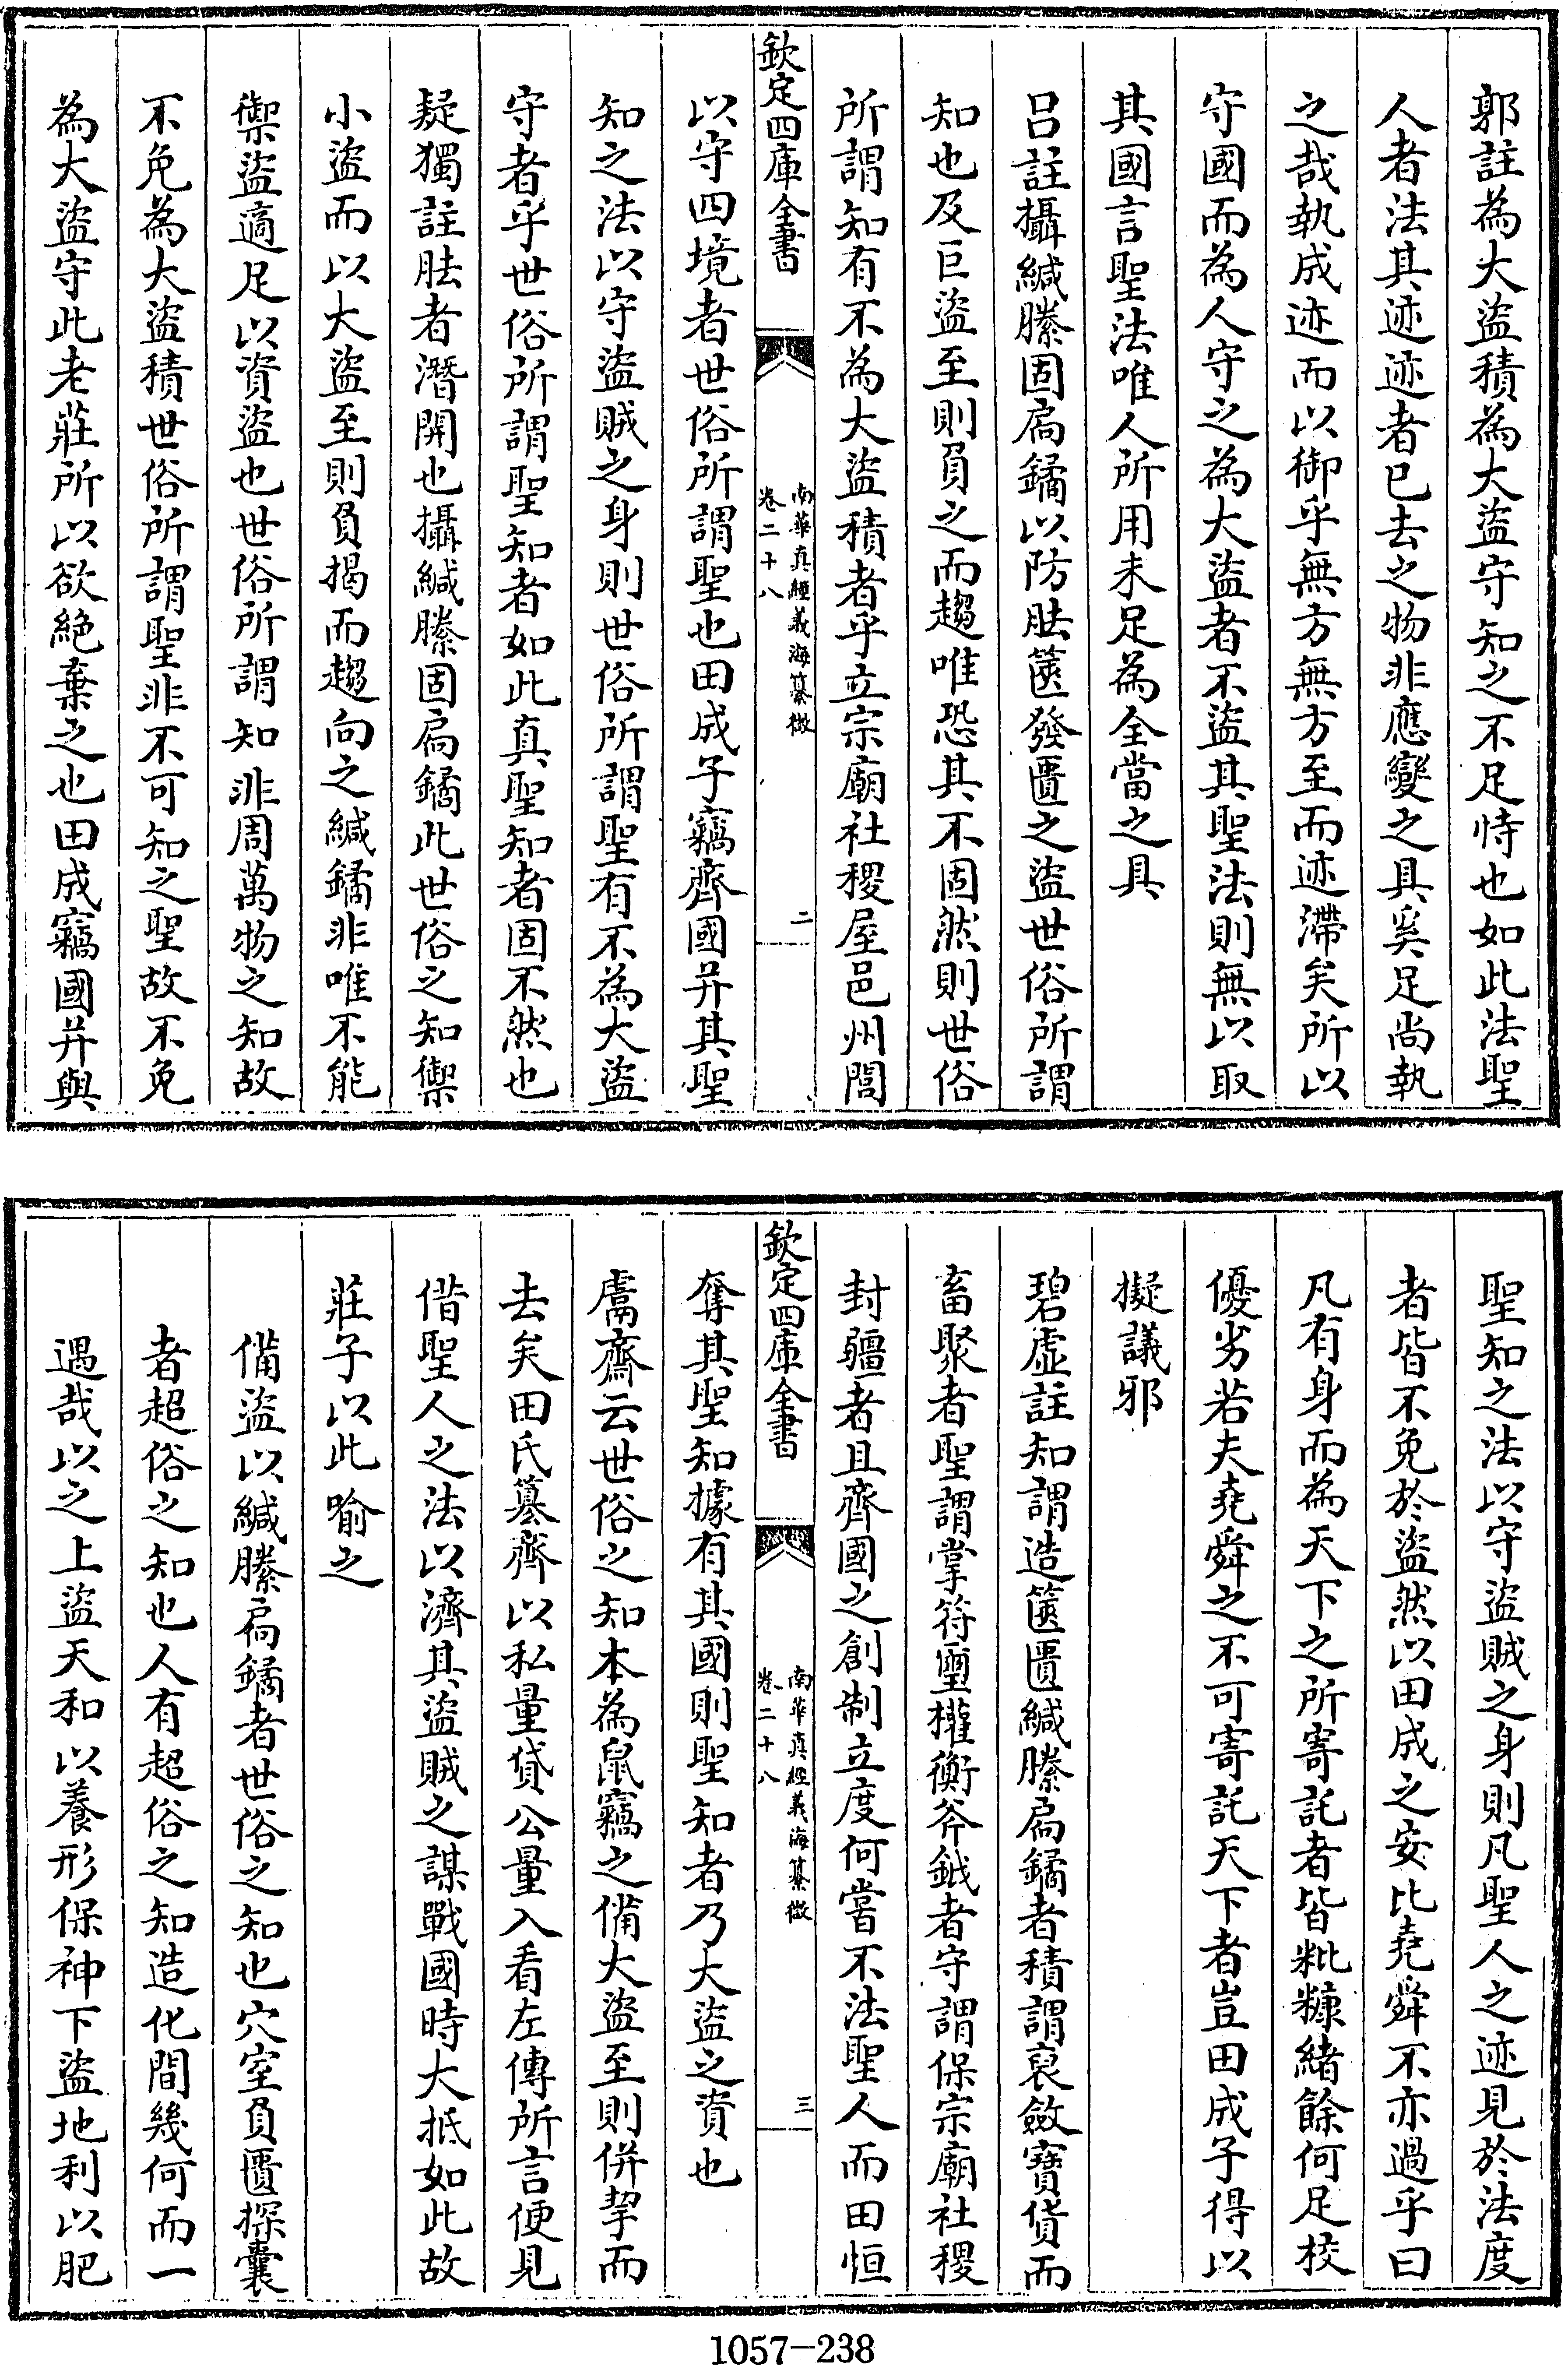 郭註為大盜積為大盜守知之不足恃也如此法聖
人者法其迹迹者已去之物非應變之具奚足尚執
之哉執成迹而以御乎無方無方至而迹滯矣所以
守國而為人守之為大盜者不盜其聖法則無以取
其國言聖法唯人所用未足為全當之具
呂註攝緘縢固扃鐍以防胠篋發匱之盜世俗所謂
知也及巨盜至則負之而趨唯恐其不固然則世俗
所謂知有不為大盜積者乎立宗廟社稷屋邑州閭
欽定四庫全書
南華真經義海纂微
卷二十八
二
以守四境者世俗所謂聖也田成子竊齊國并其聖
知之法以守盜賊之身則世俗所謂聖有不為大盜
守者乎世俗所謂聖知者如此真聖知者固不然也
疑獨註胠者潛開也攝緘縢固扃鐍此世俗之知禦
小盜而以大盜至則負揭而趨向之緘鐍非唯不能
禦盜適足以資盜也世俗所謂知非周萬物之知故
不免為大盜積世俗所謂聖非不可知之聖故不免
為大盜守此老莊所以欲絶棄之也田成竊國并與
聖知之法以守盜賊之身則凡聖人之迹見於法度
者皆不免於盜然以田成之安比堯舜不亦過乎曰
凡有身而為天下之所寄託者皆粃糠緒餘何足校
優劣若夫堯舜之不可寄託天下者豈田成子得以
擬議邪
碧虛註知謂造篋匱緘縢扃鐍者積謂裒斂寶貨而
畜聚者聖謂掌符璽權衡斧鉞者守謂保宗廟社稷
封疆者且齊國之創制立度何嘗不法聖人而田恒
欽定四庫全書
南華真經義海纂微
卷二十八
三
奪其聖知據有其國則聖知者乃大盜之資也
鬳齋云世俗之知本為鼠竊之備大盜至則併挈而
去矣田氏簒齊以私量貸公量入看左傳所言便見
借聖人之法以濟其盜賊之謀戰國時大抵如此故
莊子以此喻之
備盜以緘縢扃鐍者世俗之知也穴室負匱探囊
者超俗之知也人有超俗之知造化間幾何而一
遇哉以之上盜天和以養形保神下盜地利以肥
1057-238